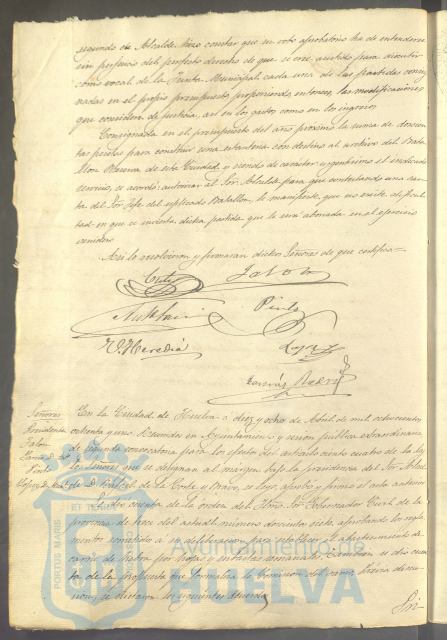 segundo de Alcalde hizo constar que su voto aprobatorio ha de entenderse
sin perjuicio del perfecto derecho de que se cree asistido para discutir
como vocal de la Junta Municipal cada una de las partidas consig-
nadas en el propio presupuesto, proponiendo entonces las modificaciones
que considere de justicia, así en los gastos como en los ingresos
Consignada en el presupuesto del año proximo la suma de doscien-
tas pesetas para construir una estanteria con destino al archivo del Bata-
llon Reserva de esta Ciudad, y siendo de caracter el indicado
servicio, se acordó autorizar al Sor. Alcalde para que contestando una car-
ta del Sor. Jefe del esplicado Batallon, le manifieste que no existe dificul-
tad en que se invierta dicha partida que le será abonada en el ejercicio
venidero
Así lo resolvieron y firmaran dichos Señores de que certifico
Pinto
Lopez
Señores
Presidente
Pinto
En la Ciudad de Huelva á diez y ocho de Abril de mil ochocientos
ochenta y uno. Reunidos en Ayuntamiento y sesion publica extraordinaria
de segunda convocatoria para los efectos del articulo ciento cuatro de la ley
los Señores que se designan al margen bajo la presidencia del Sor. Alcal-
de D. Rafael de la Corte y Bravo, se leyó, aprobó y firmó el acta anterior
Se dio cuenta de la orden del Ilmo. Sor. Gobernador Civil de la
provincia de trece del actual número doscientos siete, aprobando los regla-
mentos sometidos á su deliberacion para establecer el
carros de
ta de la propuesta que formulaba la Comision del ramo. Prévia discu-
sion, se dictaron los siguientes acuerdos
PORTUS MARIS ET TERRAE
Ayuntamiento de
HUELVA